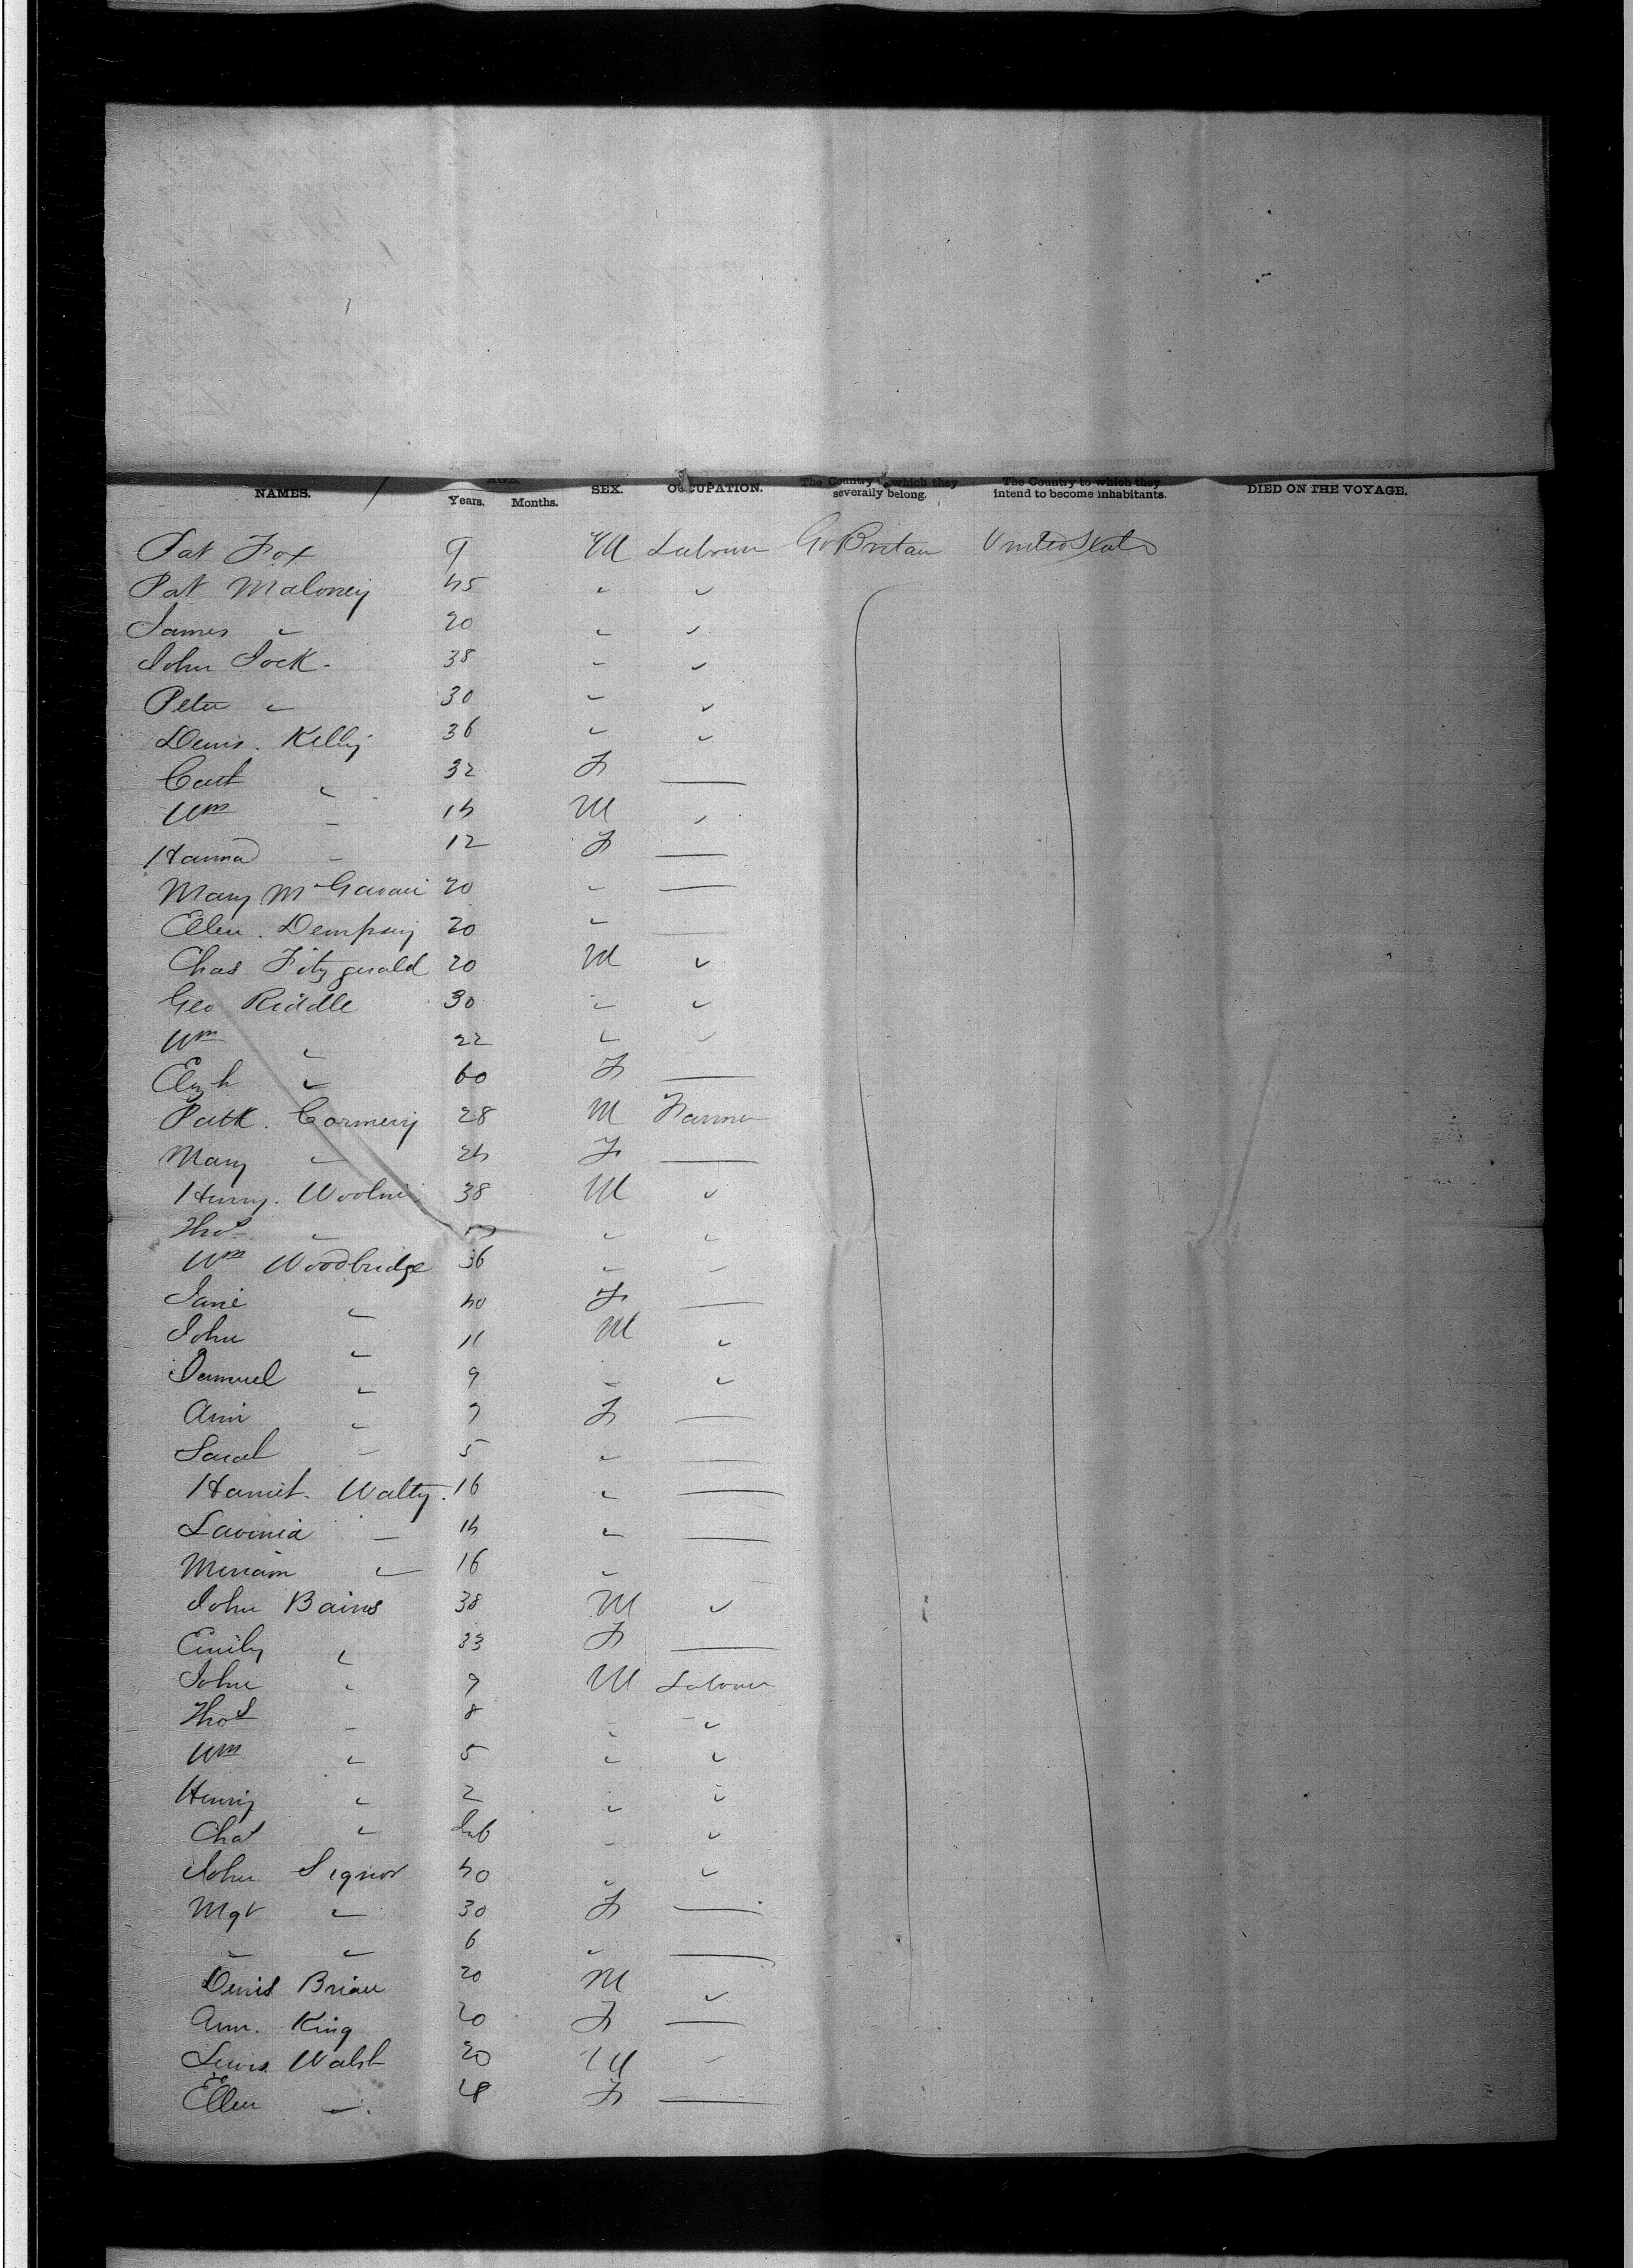 NAMES. AGE. Years. Months. SEX. OCCUPATION. The Country to which they severally belong. The Country to which they intend to become inhabitants. DIED ON THE VOYAGE.
Pat Fox 9 M Labour Gt Britain United States
Pat Maloney 45 " "
James " 20 " "
John Jock 38 " "
Peter " 30 " "
Denis Kelly 36 " "
Cath " 32 F —
Wm " 14 M "
Hanna " 12 F —
Mary 20 " —
Ellen Dempsey 20 " —
Chas Fitzgerald 20 M "
Geo Riddle 30 " "
Wm " 22 " "
Elizh " 60 F —
Patk Cormery 28 M Farmer
Mary " 24 F —
Henry 38 M "
Thos " " "
Wm Woodbridge 36 " "
Jane " 40 F —
John " 11 M "
Samuel " 9 " "
Ann " 7 F —
Sarah " 5 " —
Harriet Walty 16 " —
Lavinia " 14 " —
Miriam " 16 " —
John Bains 38 M "
Emily " 33 F —
John " 9 M Labour
Thos " 8 " "
Wm " 5 " "
Henry " 2 " "
Chas " Inf " "
John Signor 40 " "
Mgt " 30 F —
" " 6 " —
Denis Brian 20 M "
Ann King 20 F —
Lewis Walsh 20 M "
Ellen " 18 F —